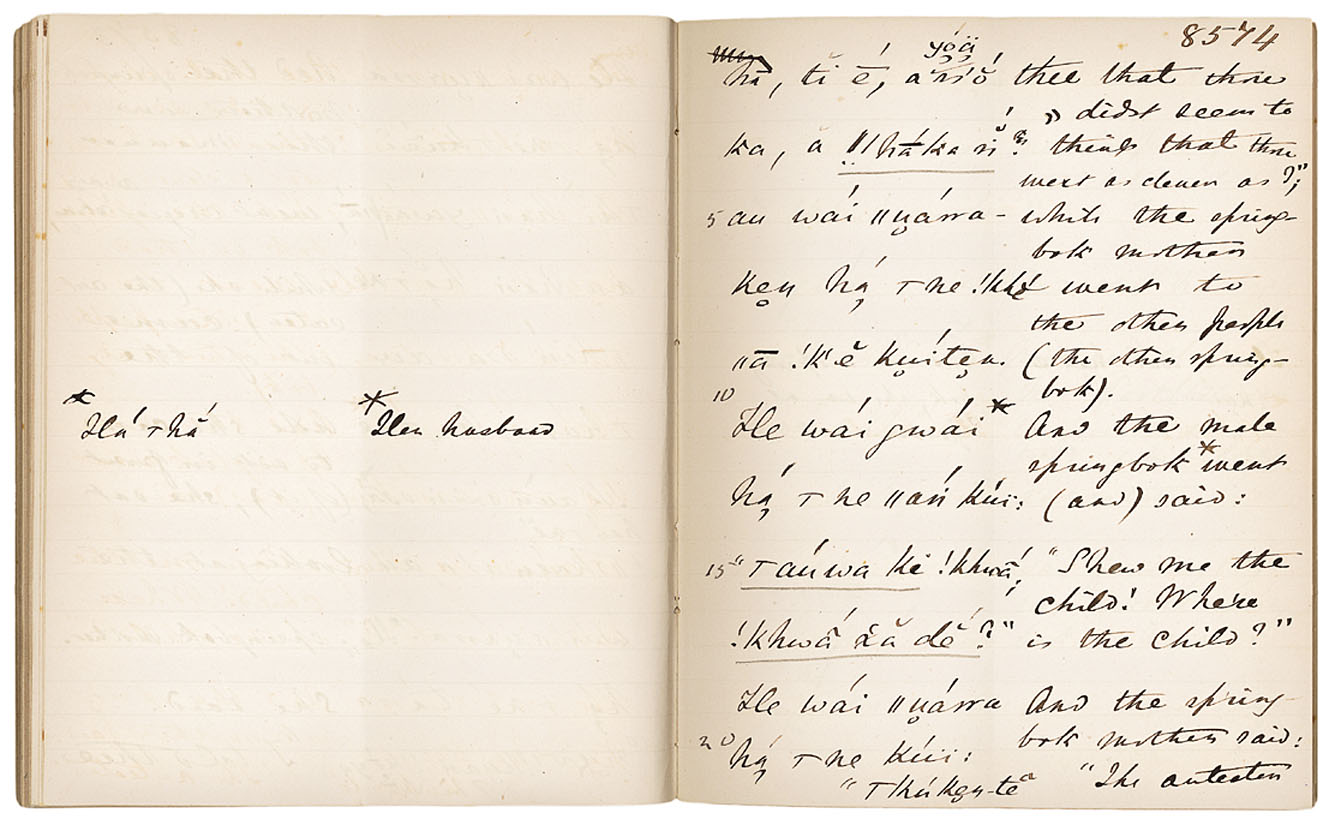 * Há ⊤hắ * Her husband
8574
yóä
hā, tĭ é, a thee that thou
didst seem to
ka, ă think that thou
wert as clever as ?";
5 au wái ǁṷárra- while the spring-
bok mother
ken há ⊤ne !khé went to
the other people
ǁā !k'ĕ kuíten. (the other spring-
10 bok).
He wái gwái * And the male
springbok * went
há ⊤ne ǁań kúï: (and) said:
15 "⊤áúwa ke !khwā́, "Shew me the
child! Where
!khwā́ ẋă dĕ́?" is the child?"
He wái ǁṷárra And the spring-
20 bok mother said:
há ⊤ne kúï:
"⊤khú "The anteater